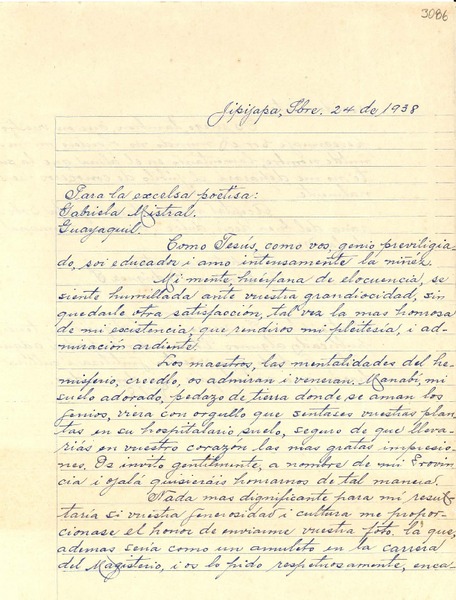 3086
Jipijapa, Sbre. 24 de 1938
Para la excelsa poetisa:
Gabriela Mistral.
Guayaquil.
Como Jesús, como vos, genio previligia-
do, soi educador i amo intensamente la niñéz.
Mi mente, huerfana de elocuencia, se
siente humillada ante vuestra grandiocidad, sin
quedarle otra satisfacción, tal vez la mas honrosa
de mi escistencia, que rendiros mi pleitecía, i ad-
miración ardiente.
Los maestros, las mentalidades del he-
misferio, creedlo, os admiran i veneran. Manabí, mi
suelo adorado, pedazo de tierra donde se aman los
genios, viera con orgullo que sentases vuestras plan-
tas en su hospitalario suelo, seguro de que lleva-
riás en vuestro corazón las mas gratas impresio-
nes. Os invito gentilmente, a nombre de mi Provin-
cia i ojalá quisierais honrarnos de tal manera.
Nada mas dignificante para mi resul-
taría si vuestra generosidad i cultura me propor-
cionase el honor de enviarme vuestra fóto, la que,
ademas seria como un amuleto en la carrera
del Magisterio, i os lo pido respetuosamente, enca-